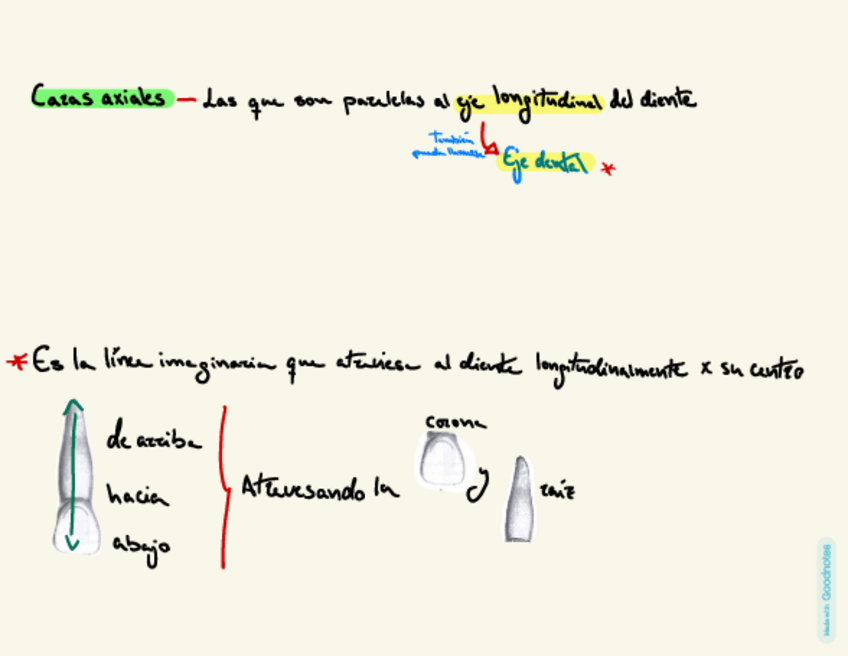 Caras axiales — Las que son paralelas al eje longitudinal del diente
También
puede llamarse
Eje dental *
* Es la línea imaginaria que atraviesa al diente longitudinalmente x su centro
de arriba
hacia
abajo
Atravesando la
corona
y
raíz
Made with Goodnotes